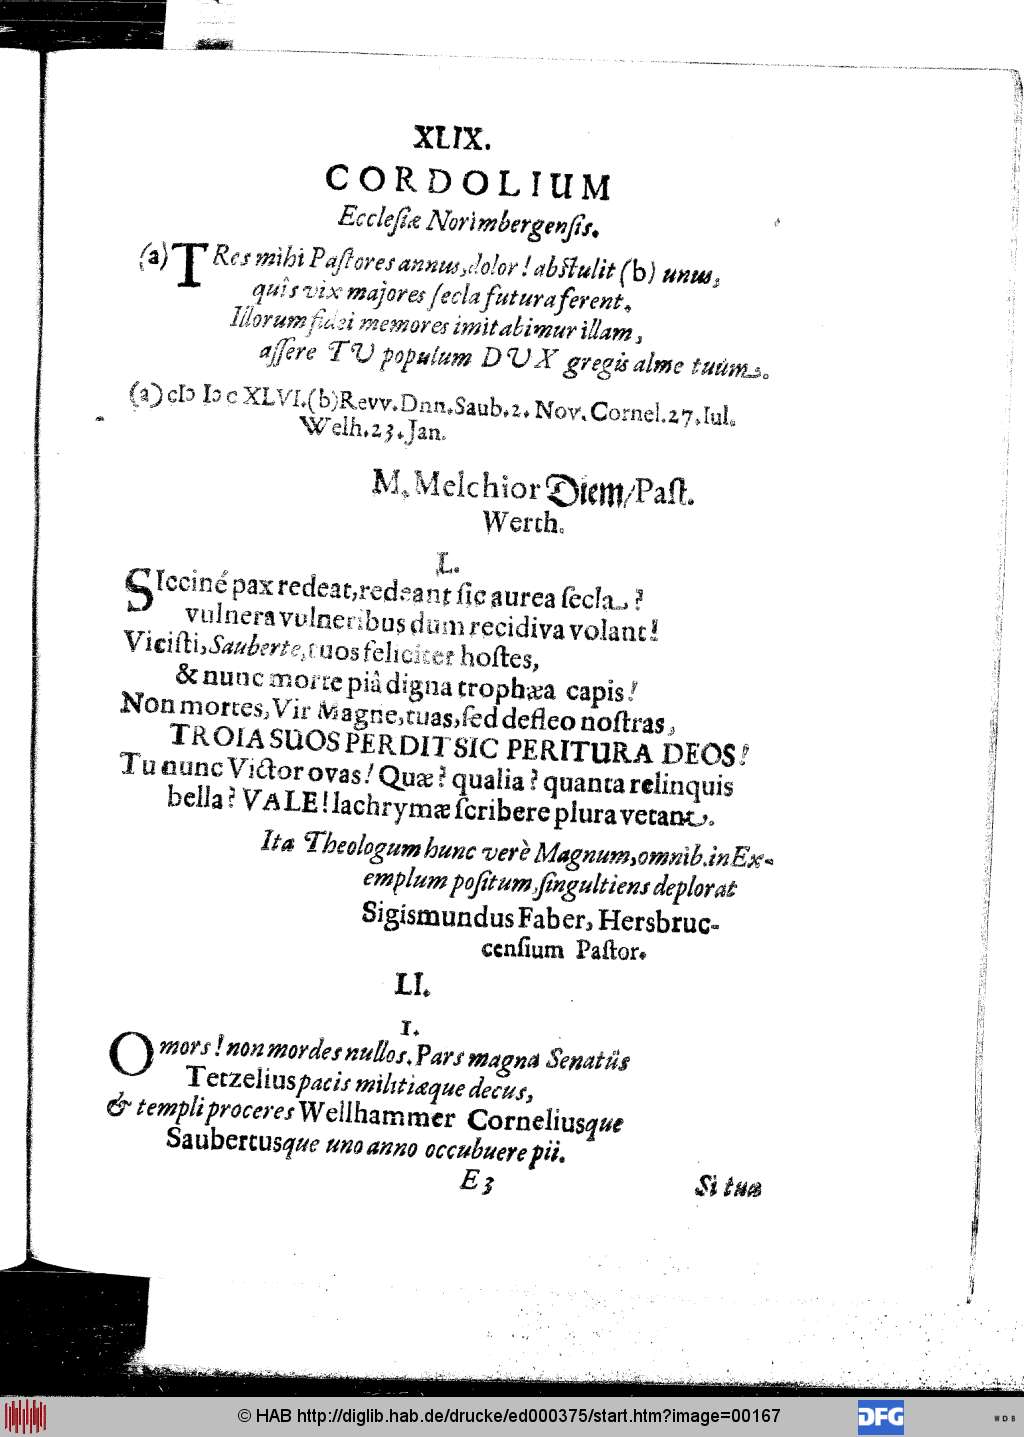 XLIX.
CORDOLIUM
Ecclesiæ Norimbergensis.
(a) TRes mihi Pastores annus, dolor! abstulit (b) unus,
quîs vix majores secla futura ferent.
Illorum fidei memores imitabimur illam,
assere TU populum DUX gregis alme tuùm.
(a) cIↄ Iↄ c XLVI. (b) Revv. Dnn. Saub. 2. Nov. Cornel. 27. Iul.
Welh. 23. Jan.
M. Melchior Diem / Past.
Werth.
L.
SIcciné pax redeat, redeant sic aurea secla?
vulnera vulneribus dum recidiva volant!
Vicisti, Sauberte, tuos feliciter hostes,
& nunc morte piâ digna trophæa capis!
Non mortes, Vir Magne, tuas, sed defleo nostras,
TROIA SUOS PERDIT SIC PERITURA DEOS!
Tu nunc Victor ovas! Quæ? qualia? quanta relinquis
bella? VALE! lachrymæ scribere plura vetant.
Ita Theologum hunc verè Magnum, omnib. in Ex-
emplum positum, singultiens deplorat
Sigismundus Faber, Hersbruc-
censium Pastor.
LI.
I.
O mors! non mordes nullos. Pars magna Senatûs
Tetzelius pacis militiæque decus,
& templi proceres Wellhammer Corneliusque
Saubertusque uno anno occubuere pii.
E 3
Si tua
© HAB http://diglib.hab.de/drucke/ed000375/start.htm?image=00167
DFG
WDB